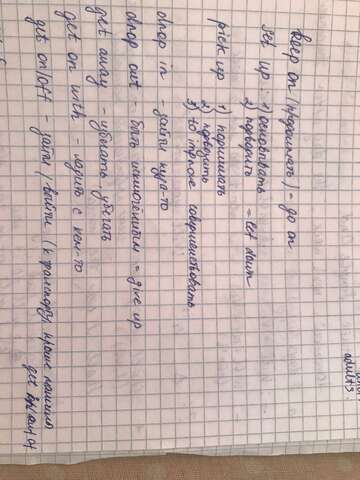 keep on (продолжать) = go on
set up : 1) основывать
2) подводить = let down
pick up 1) поднимать
2) подвозить
3) to improve совершенствовать
drop in - зайти куда-то
drop out - быть = give up
get away - убегать
get on with - ладить с кем-то
get on/off - зайти / выйти (к транспорту, кроме машины
get in/out of
adults